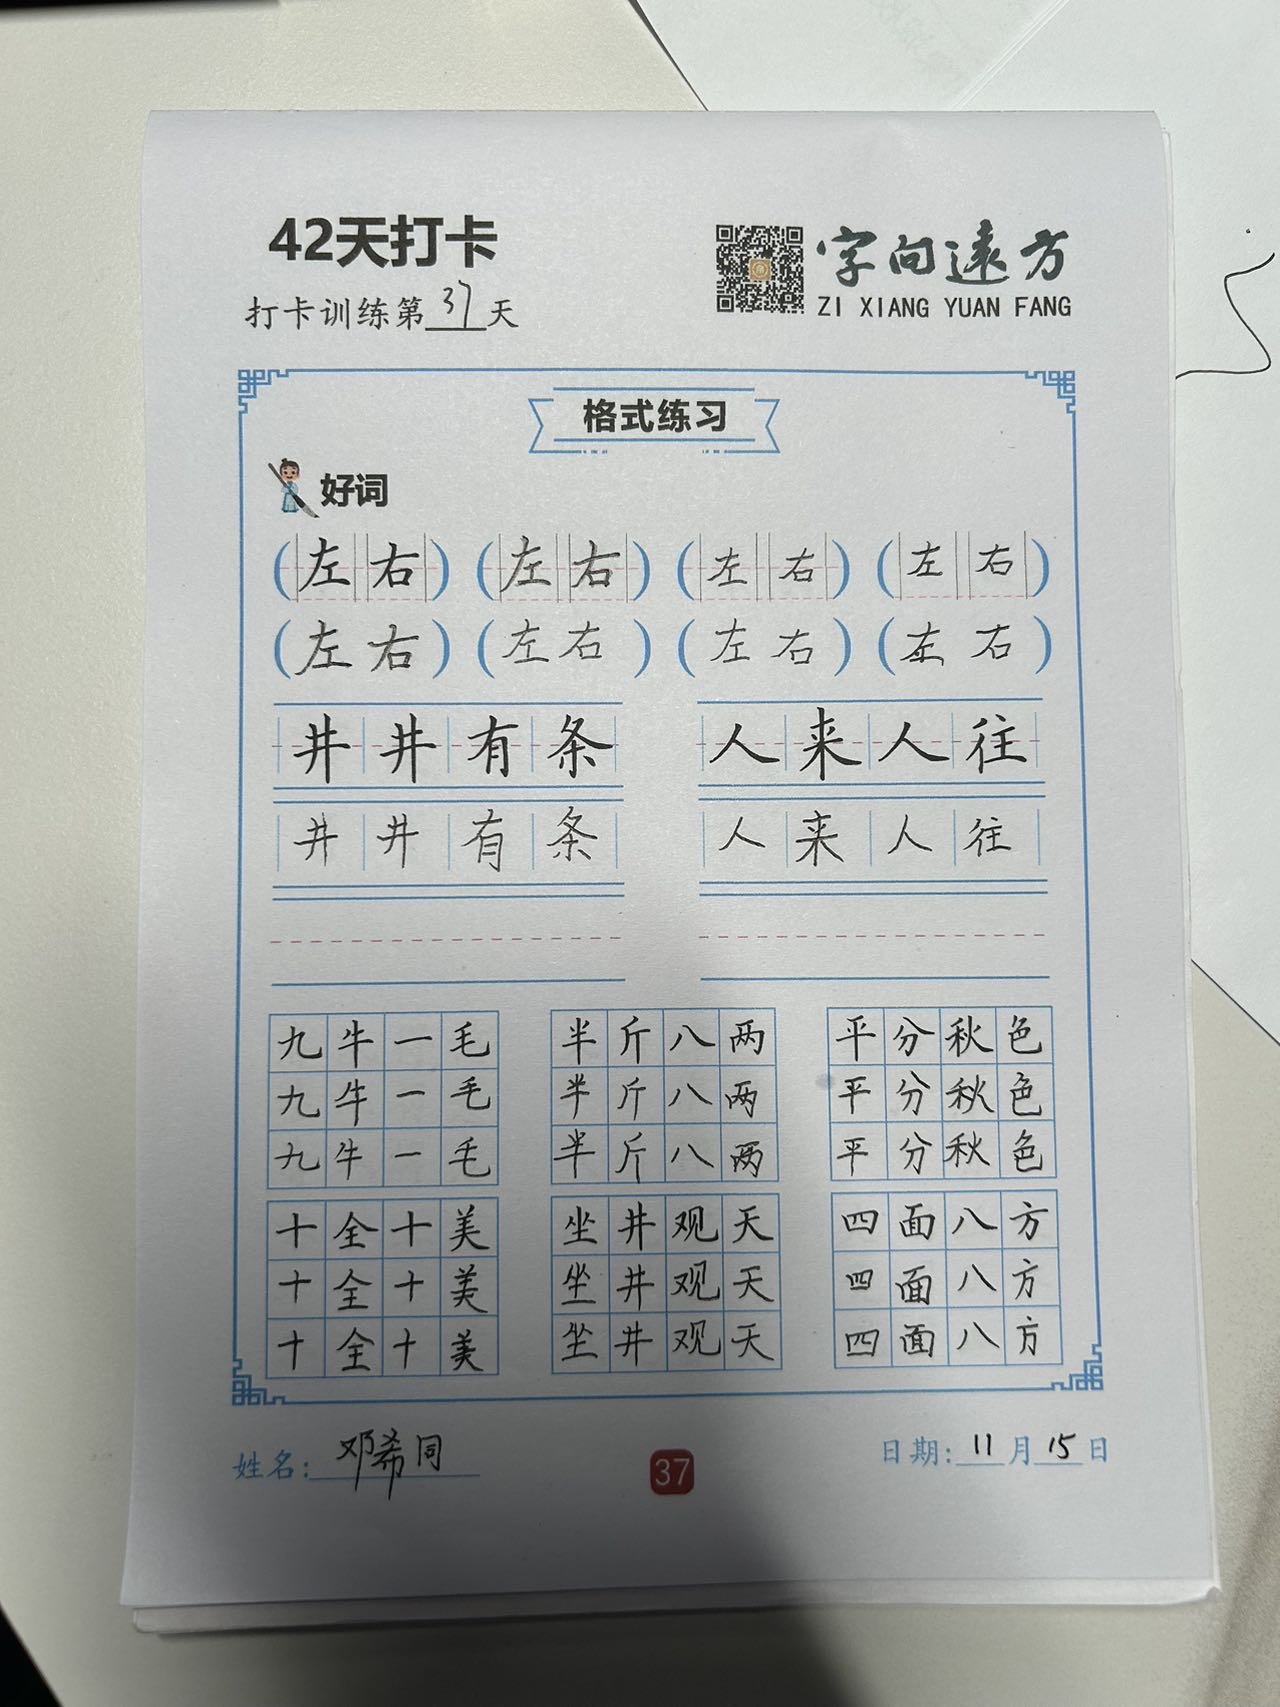 42天打卡
字向远方
打卡训练第37天
ZI XIANG YUAN FANG
格式练习
好词
(左右) (左右) (左右) (左右)
(左右) (左右) (左右) (左右)
井井有条 人来人往
井井有条 人来人往
九牛一毛 半斤八两 平分秋色
九牛一毛 半斤八两 平分秋色
九牛一毛 半斤八两 平分秋色
十全十美 坐井观天 四面八方
十全十美 坐井观天 四面八方
十全十美 坐井观天 四面八方
姓名:邓希同 37 日期:11月15日